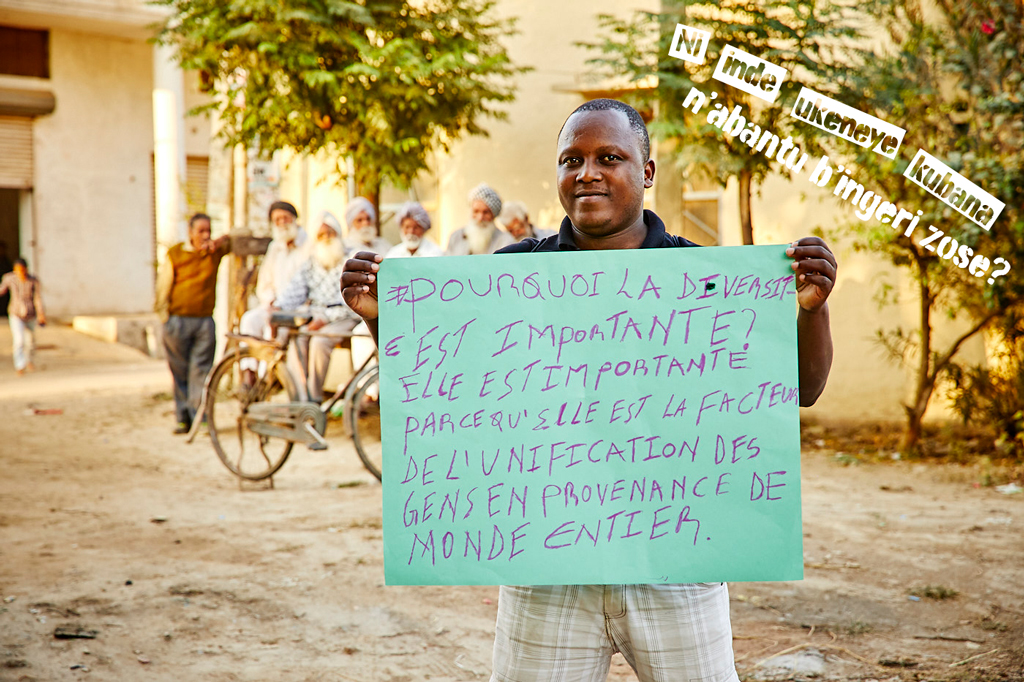 Ni inde ukeneye kubana
n'abantu b'ingeri zose?
#POURQUOI LA DIVERSIT-
É EST IMPORTANTE?
ELLE EST IMPORTANTE
PARCE QU'ELLE EST LA FACTEUR
DE L'UNIFICATION DES
GENS EN PROVENANCE DE
MONDE ENTIER.